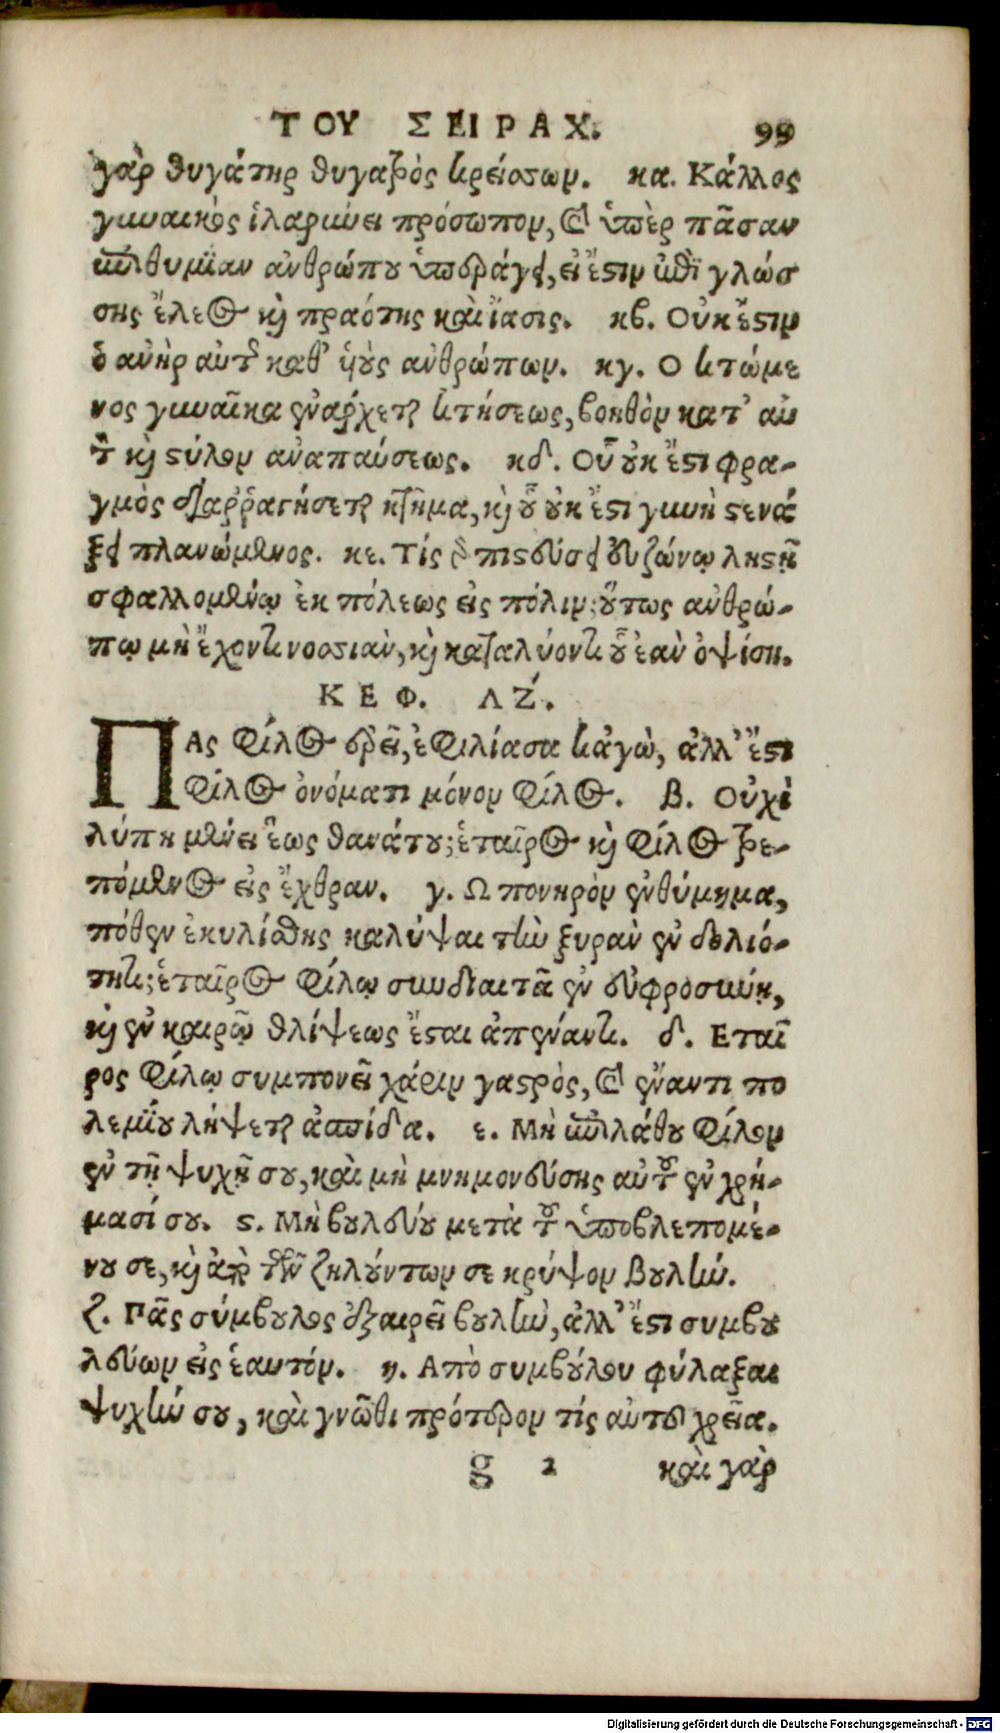 ΤΟΥ ΣΕΙΡΑΧ. 99
γὰρ θυγάτηρ θυγατρὸς κρείσσων. κα. Κάλλος
γυναικὸς ἱλαρύνει πρόσωπον, καὶ ὑπὲρ πᾶσαν
ἐπιθυμίαν ἀνθρώπου ὑπεράγει, εἰ ἔστιν ἐπὶ γλώσ
σης ἔλεος καὶ πραότης καὶ ἴασις. κβ. Οὐκ ἔστιν
ὁ ἀνὴρ αὐτῆς καθ' υἱοὺς ἀνθρώπων. κγ. Ο κτώμε
νος γυναῖκα ἐνάρχεται κτήσεως, βοηθὸν κατ' αὐ
τὸν καὶ στύλον ἀναπαύσεως. κδ. Οὗ οὐκ ἔστι φρα-
γμὸς διαρραγήσεται κτῆμα, καὶ οὗ οὐκ ἔστι γυνὴ στενά
ξει πλανώμενος. κε. Τίς γὰρ πιστεύσει εὐζώνῳ λῃστῇ
σφαλλομένῳ ἐκ πόλεως εἰς πόλιν; οὕτως ἀνθρώ-
πῳ μὴ ἔχοντι νοσσιὰν, καὶ καταλύοντι οὗ ἐὰν ὀψίσῃ.
ΚΕΦ. ΛΖ.
ΠΑς φίλος ἐρεῖ, ἐφιλίασα κἀγὼ, ἀλλ' ἔστι
φίλος ὀνόματι μόνον φίλος. β. Οὐχὶ
λύπη μένει ἕως θανάτου; ἑταῖρος καὶ φίλος τρε-
πόμενος εἰς ἔχθραν. γ. Ω πονηρὸν ἐνθύμημα,
πόθεν ἐκυλίσθης καλύψαι τὴν ξυρὰν ἐν δολιό-
τητι; ἑταῖρος φίλῳ συνδιαιτᾶ ἐν εὐφροσύνῃ,
καὶ ἐν καιρῷ θλίψεως ἔσται ἀπέναντι. δ. Εταῖ
ρος φίλῳ συμπονεῖ χάριν γαστρὸς, καὶ ἔναντι πο
λεμίου λήψεται ἀσπίδα. ε. Μὴ ἐπιλάθου φίλον
ἐν τῇ ψυχῇ σου, καὶ μὴ μνημονεύσῃς αὐτοῦ ἐν χρή-
μασί σου. ς. Μὴ βουλεύου μετὰ τοῦ ὑποβλεπομέ-
νου σε, καὶ ἀπὸ τῶν ζηλούντων σε κρύψον βουλήν.
ζ. Πᾶς σύμβουλος ἐξαιρεῖ βουλὴν, ἀλλ' ἔστι συμβου
λεύων εἰς ἑαυτόν. η. Απὸ συμβούλου φύλαξαι
ψυχήν σου, καὶ γνῶθι πρότερον τίς αὐτοῦ χρεία.
g 2 καὶ γὰρ
Digitalisierung gefördert durch die Deutsche Forschungsgemeinschaft - DFG